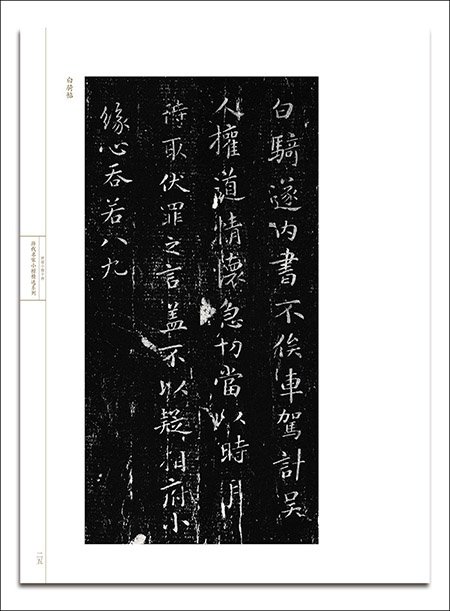 白騎遂内書不俟車駕計吴
人權道情懷急切當以時月
待取伏罪之言盖不以疑相府小
緣心吞若八九
白骑帖
历代名家小楷精选系列
二五